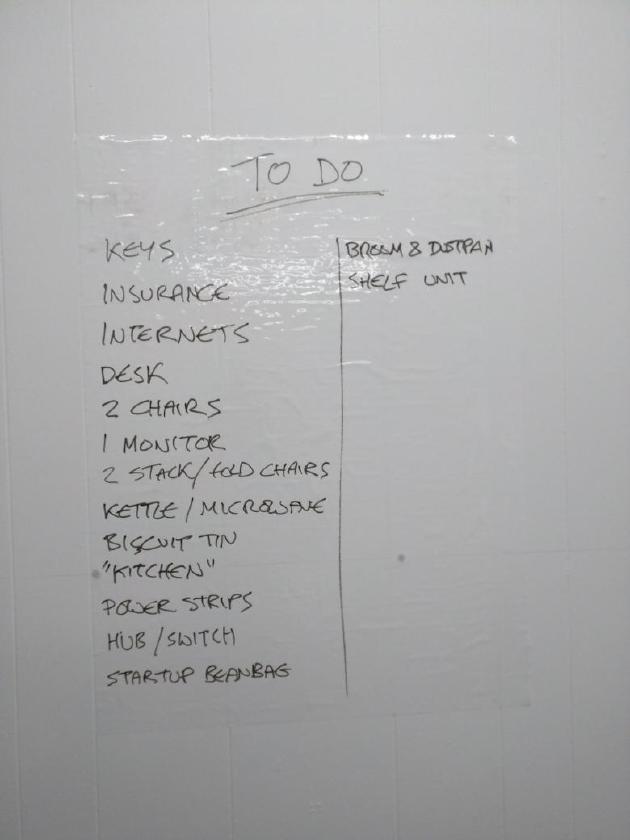 TO DO
KEYS
INSURANCE
INTERNETS
DESK
2 CHAIRS
1 MONITOR
2 STACK/FOLD CHAIRS
KETTLE / MICROWAVE
BISCUIT TIN
"KITCHEN"
POWER STRIPS
HUB / SWITCH
STARTUP BEANBAG
BROOM & DUSTPAN
SHELF UNIT